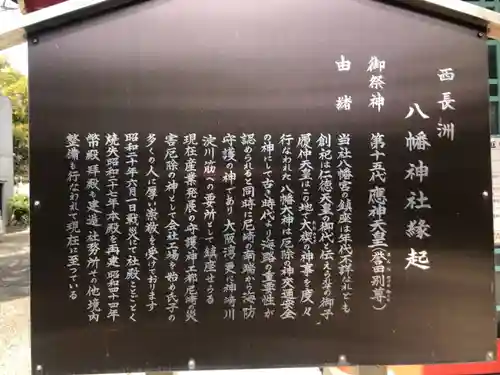 西長洲
八幡神社縁起
御祭神　第十五代應神天皇(誉田別尊)
由緒
当社八幡宮の鎮座は年代不詳なれども
創祀は仁徳天皇の御代と伝えるその御子
履仲天皇はこの地大攘の神事を度々
行なわれた八幡大神は厄除の神交通安全
の神にして古き時代より海路の重要性が
認められると同時に尼崎の南端から海防
守護の神であり大阪湾の要の神崎川
淀川筋への要所として鎮座せらる
現在産業発展の守護神工都尼崎の災
害厄除の神として会社工場を始め氏子の
多くの人に厚い崇敬を受けております
昭和二十年六月一日戦災にて社殿ことごとく
焼失昭和三十三年本殿を再建昭和四十四年
幣殿拝殿の建造社務所その他境内
整備も行なわれて現在に至っている